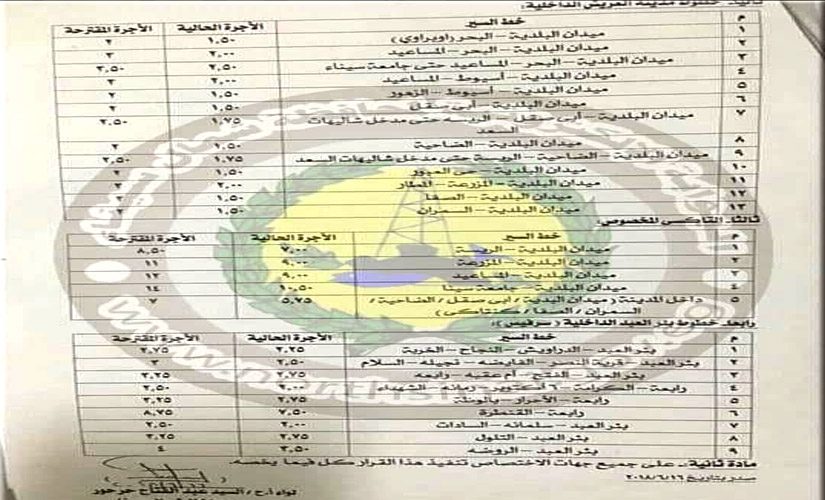 ثانيا: خطوط مدينة العريش الداخلية:
م خط السير الأجرة الحالية الأجرة المقترحة
١ ميدان البلدية – البحر (اوبراوي) ١,٥٠ ٢
٢ ميدان البلدية – البحر – المساعيد ٢,٠٠ ٣
٣ ميدان البلدية – البحر – المساعيد حتى جامعة سيناء ٢,٥٠ ٣,٥٠
٤ ميدان البلدية – أسيوط – المساعيد ٢,٠٠ ٣
٥ ميدان البلدية – أسيوط – الزهور ١,٥٠ ٢
٦ ميدان البلدية – أبى صقل ١,٥٠ ٢
٧ ميدان البلدية – أبى صقل – الريسة حتى مدخل شاليهات ١,٧٥ ٢,٥٠
السعد
٨ ميدان البلدية – الضاحية ١,٥٠ ٢
٩ ميدان البلدية – الضاحية – الريسة حتى مدخل شاليهات السعد ١,٧٥ ٢,٥٠
١٠ ميدان البلدية – حى العبور ١,٥٠ ٢
١١ ميدان البلدية – المزرعة – المطار ٢,٠٠ ٣
١٢ ميدان البلدية – الصفا ١,٥٠ ٢
١٣ ميدان البلدية – السمران ١,٥٠ ٢
ثالثا: التاكسى المخصوص:
م خط السير الأجرة الحالية الأجرة المقترحة
١ ميدان البلدية – الريسة ٧,٠٠ ٨,٥٠
٢ ميدان البلدية – المزرعة ٩,٠٠ ١١
٣ ميدان البلدية – المساعيد ٩,٠٠ ١٢
٤ ميدان البلدية – جامعة سينا ١٠,٥٠ ١٤
٥ داخل المدينة (ميدان البدية / ابى صقل / الضاحية / ٥,٧٥ ٧
السمران / الصفا / كنتاكى)
رابعا: خطوط بئر العبد الداخلية (سرفيس):
م خط السير الأجرة الحالية الأجرة المقترحة
١ بئر العبد – الدراويش – النجاح – الخربة ٢,٢٥ ٢,٧٥
٢ بئر العبد – قرية النصر – نجيله – السلام ٢,٥٠ ٣
٣ بئر العبد – الفتح – أم عقبه – رابعه ٢,٧٥ ٣,٢٥
٤ رابعة – الكرامة – ٦ أكتوبر – رمانه – الشهداء ٢,٠٠ ٢,٥٠
٥ رابعة – الأحرار – بالوظة ٢,٧٥ ٣,٢٥
٦ رابعة – القنطرة ٧,٥٠ ٨,٧٥
٧ بئر العبد – سلمانه – السادات ٢,٠٠ ٢,٥٠
٨ بئر العبد – التلول ٢,٧٥ ٣,٢٥
٩ بئر العبد – الروضه ٣,٥٠ ٤
مادة ثانية:ـ على جميع جهات الاختصاص تنفيذ هذا القرار كل فيما يخصه.
صدر بتاريخ ٢٠١٨/٦/١٦
لواء أ.ح / السيد عبد الفتاح حرحور